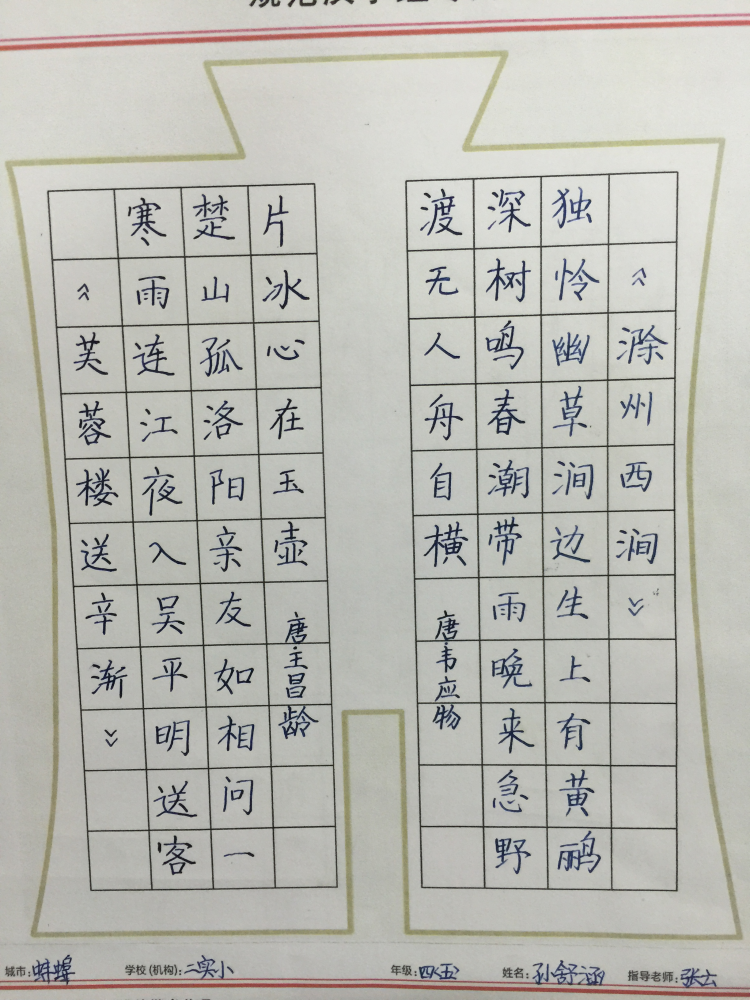 《滁州西涧》
独怜幽草涧边生上有黄鹂
深树鸣春潮带雨晚来急野
渡无人舟自横
唐·韦应物
《芙蓉楼送辛渐》
寒雨连江夜入吴平明送客
楚山孤洛阳亲友如相问一
片冰心在玉壶
唐·王昌龄
城市:蚌埠 学校(机构):二实小 年级:四(五) 姓名:孙舒涵 指导老师:张